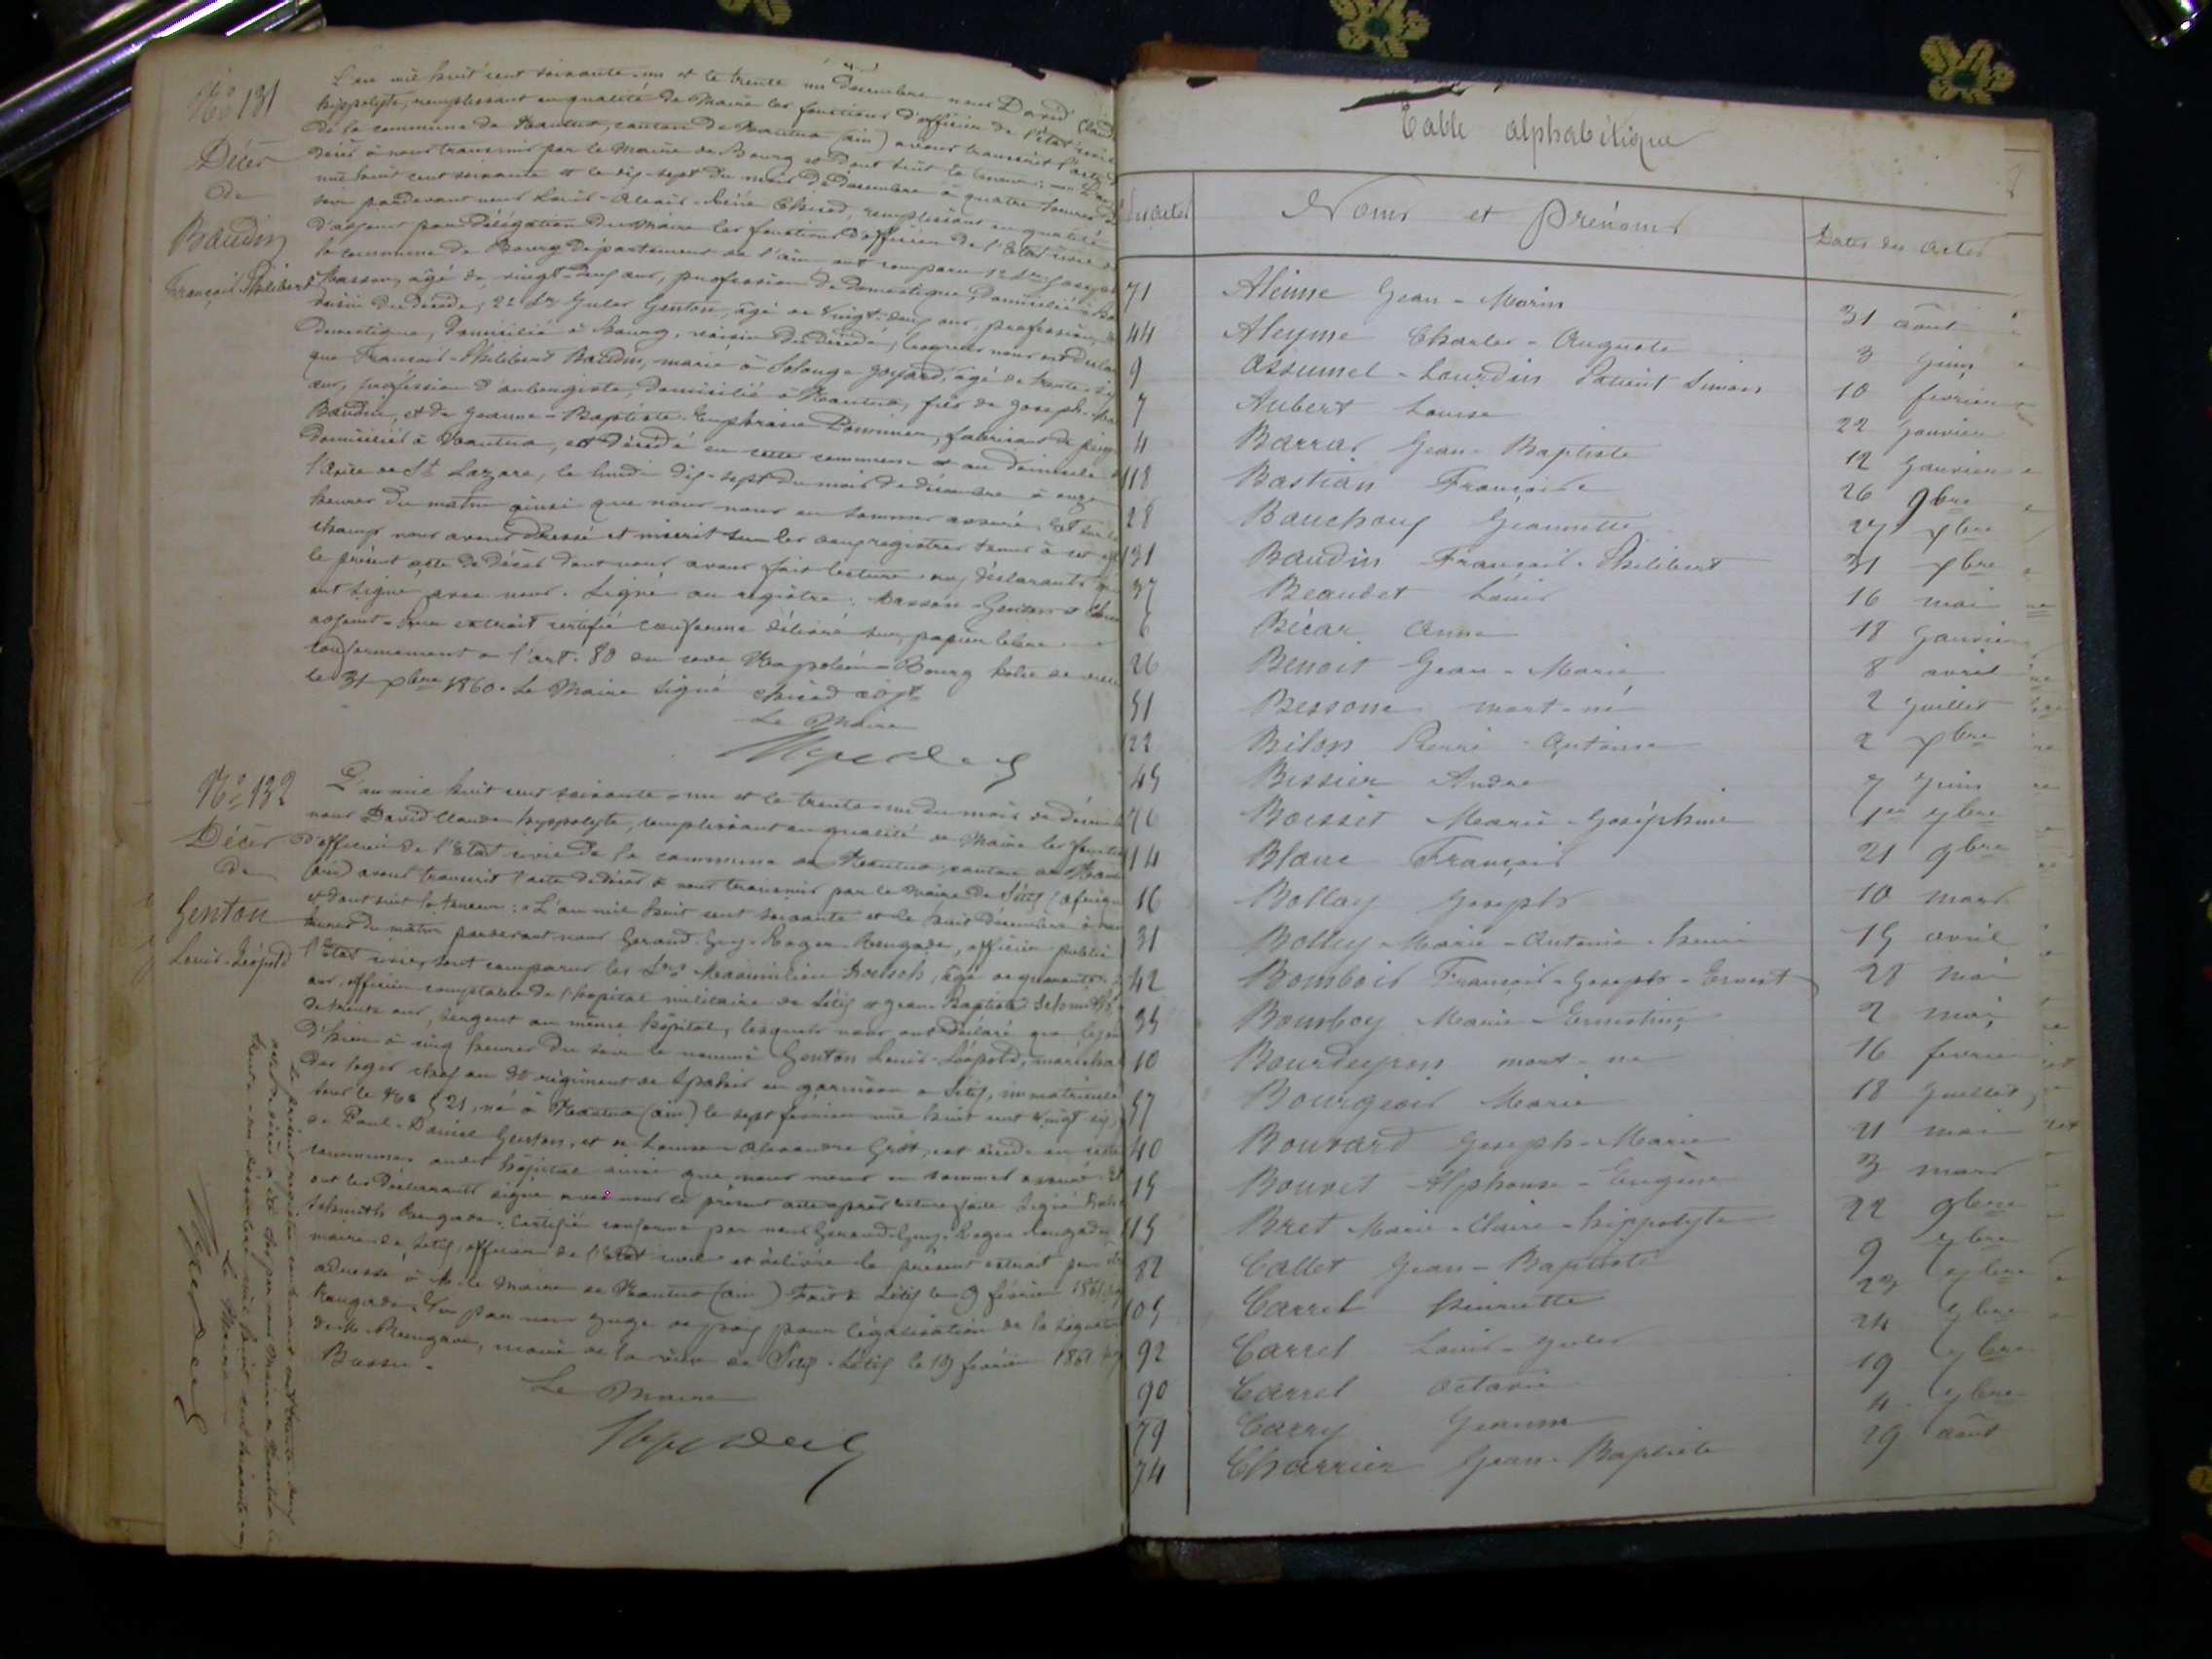 N° 131
Décès
de
Baudin
François Philibert
L'an mil huit cent soixante-un et le trente un Décembre nous David Claude
hyppolyte, remplissant en qualité de Maire les fonctions d'officier de l'état civil
de la commune de Nantua, canton de Nantua (ain) avons transcrit l'acte de
décès à nous transmis par le Maire de Bourg et dont suit la teneur : L'an
mil huit cent soixante et le dix-sept du mois de décembre à quatre heures du
soir pardevant nous Louis-Chicod, remplissant en qualité
d'adjoint par délégation du Maire les fonctions d'officier de l'Etat civil de
la commune de Bourg département de l'ain ont comparu 1° Joseph
Masson, âgé de vingt-neuf ans, profession de domestique, domicilié à
voisin du décédé, 2° Jules Genton, âgé de vingt-deux ans, profession de
domestique, domicilié à Bourg, voisin du décédé, lesquels nous ont déclaré
que François-Philibert Baudin, marié à Solange Goyard, âgé de trente-six
ans, profession d'aubergiste, domicilié à Nantua, fils de Joseph
Baudin, et de Jeanne-Baptiste Euphrasie fabricant de peignes
domiciliés à Nantua, est décédé en cette commune et au domicile de
l'asile de St Lazare, le lundi dix-sept du mois de décembre à onze
heures du matin ainsi que nous nous en sommes assuré. Et sur le
champ nous avons dressé et inscrit sur les deux registres tenus à cet effet
le présent acte de décès dont nous avons fait lecture aux déclarants qui
ont signé avec nous. Signé au registre : Masson Genton & Chicod
adjoint. Pour extrait certifié conforme délivré sur papier libre
conformément à l'art. 80 du code Napoléon. Bourg hôtel de ville
le 31 xbre 1860. Le Maire Signé Chicod adjt
Le Maire
N° 132
Décès
de
Genton
Louis-Léopold
L'an mil huit cent soixante-un et le trente-un du mois de décembre
nous David Claude hyppolyte, remplissant en qualité de Maire les fonctions
d'officier de l'Etat civil de la commune de Nantua, canton de Nantua
(ain) avons transcrit l'acte de décès à nous transmis par le Maire de Sétif (afrique)
et dont suit la teneur : L'an mil huit cent soixante et le huit décembre à
heures du matin pardevant nous Gerand-Guy-Roger Rengade, officier public
l'Etat civil, sont comparus les Srs Maximilien âgé de quarante
ans, officier comptable de l'hopital militaire de Sétif & Jean-Baptiste Schmith,
de trente ans, sergent au même hôpital, lesquels nous ont déclaré que le jour
d'hier à cinq heures du soir le nommé Genton Louis-Léopold, maréchal
des logis chef au 3e régiment de Spahis en garnison à Sétif, immatriculé
sous le N° 521, né à Nantua (ain) le sept février mil huit cent vingt six,
de Paul-Daniel Genton, et de Louise-Alexandre Grott, est décédé en cette
commune audit hôpital ainsi que nous nous en sommes assuré. Et
ont les déclarants signé avec nous le présent acte après lecture faite. Signé
Schmith Rengade. Certifié conforme par nous Gerand-Guy-Roger Rengade,
maire de Sétif, officier de l'Etat civil et délivré le présent extrait pour être
adressé à M. le Maire de Nantua (ain) Fait à Sétif le 9 février 1861
Rengade. Vu par nous juge de paix pour légalisation de la signature
de M. Rengade, maire de la ville de Sétif. Sétif le 19 février 1861
Bussu.
Le Maire
Le présent registre contenant cent trente-deux
actes de décès a été clos par nous Maire de Nantua le
trente-un décembre mil huit cent soixante-un
Le Maire
Table alphabétique
des actes Noms et Prénoms Dates des actes
71 Aleime Jean-Marin 31 août
44 Aleyme Charles-Auguste 3 juin
9 Assumel-Lourdin Patient Simon 10 fevrier
7 Aubert Louise 22 janvier
4 Barras Jean-Baptiste 12 janvier
118 Bastian Françoise 26 9bre
128 Bauchouf Jeannette 27 xbre
131 Baudin François-Philibert 31 xbre
37 Beaudet Louis 16 mai
6 Bécar Anna 18 janvier
26 Benoit Jean-Marie 8 avril
51 Bessone mort-né 2 juillet
122 Bilon Pierre-Antoine 2 xbre
45 Bissier André 7 juin
76 Boisset Marie-Joséphine 1er 7bre
114 Blanc François 21 9bre
16 Bollay Joseph 10 mars
31 Bolley-Marie-Antonie-henri 15 avril
42 Bombois François-Joseph-Ernest 28 mai
35 Bomboy Marie-Ernestine 2 mai
10 Bourdeyron mort-né 16 fevrier
57 Bourgeois Marie 18 juillet
40 Bouvard Joseph-Marie 21 mai
15 Bouvet Alphonse-Eugène 3 mars
115 Bret Marie-Claire-hippolyte 22 9bre
82 Callet Jean-Baptiste 9 7bre
105 Carrel henriette 23 8bre
92 Carrel Louis-Jules 24 7bre
90 Carrel Octavie 19 7bre
79 Carry Jeanne 4 7bre
74 Charrier Jean-Baptiste 29 août